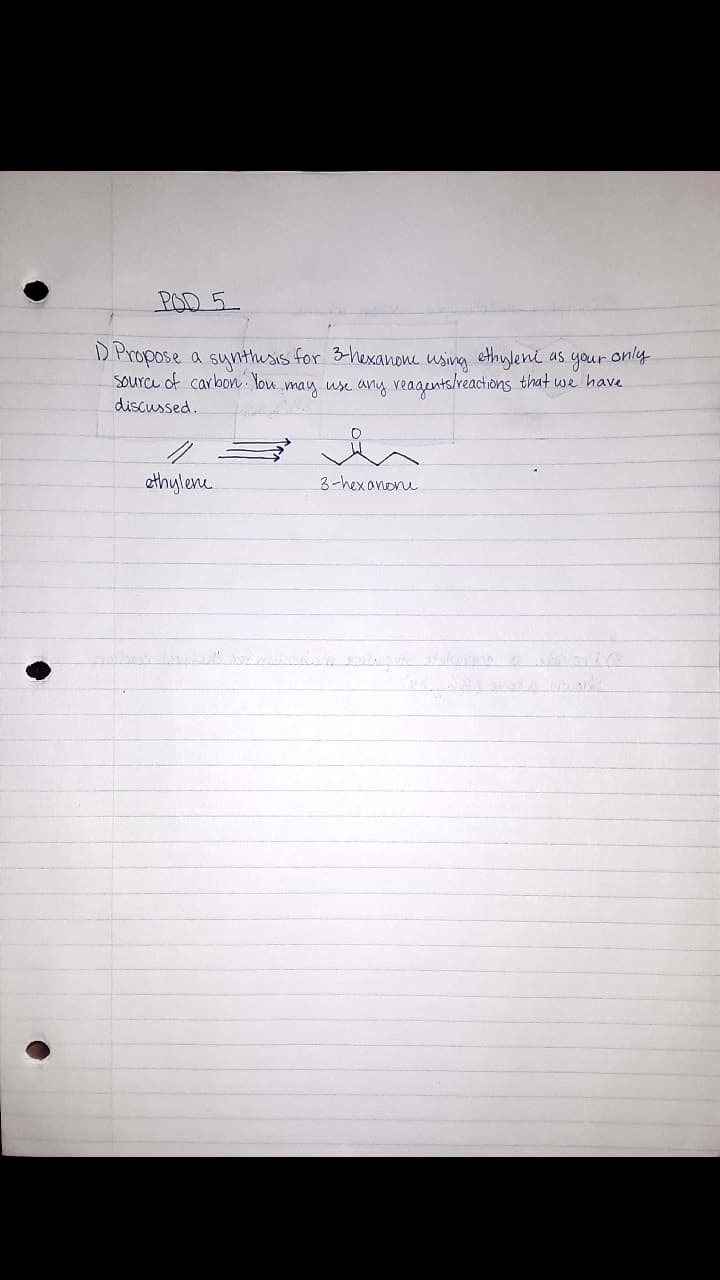 POD 5
1) Propose a synthesis for 3-hexanone using ethylene as your only
source of carbon. You may use any reagents/reactions that we have
discussed.
O
ethylene 3-hexanone